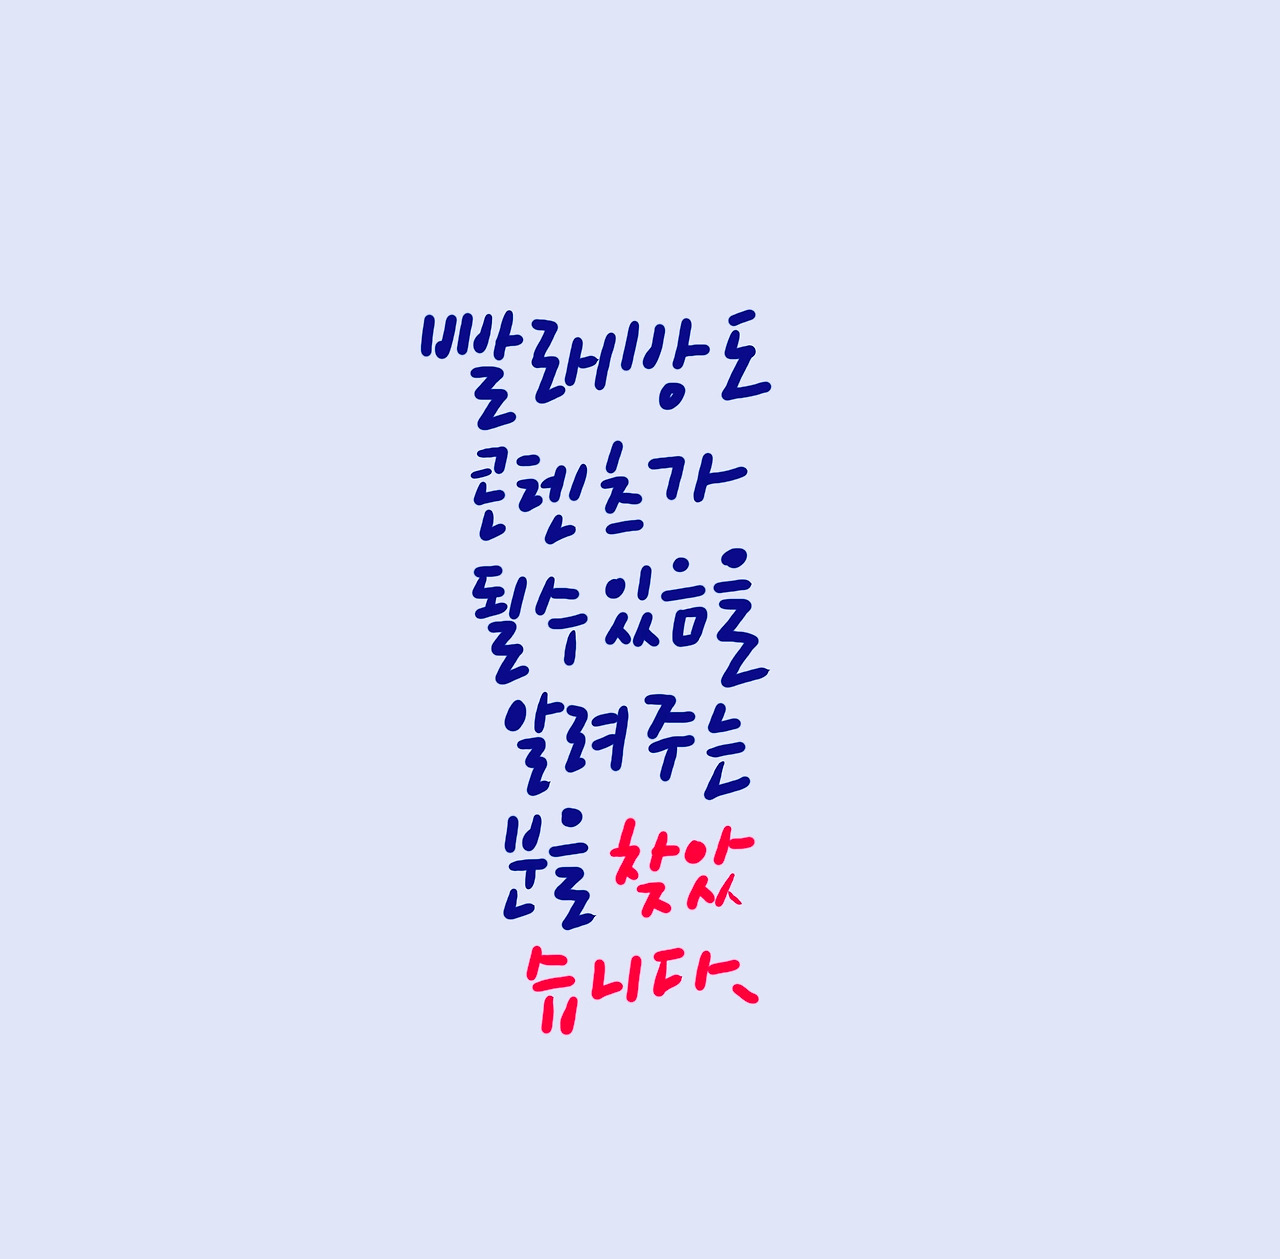 빨래방도
콘텐츠가
될수있음을
알려주는
분을 찾았
습니다.